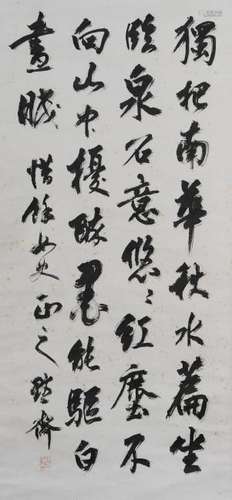 獨把南華秋水篇坐
臨泉石意悠〻紅塵不
向山中擾酔墨能驅白
晝眠 惜餘女史正之 齋